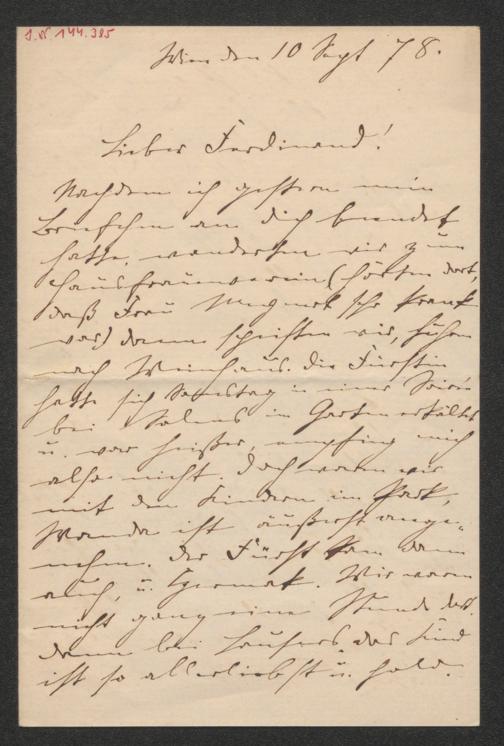 J.N. 144.385
Wien den 10 Sept 78.
Lieber Ferdinand!
Nachdem ich gestern mein
Briefchen an dich beendet
hatte, wanderten wir zum
Hausfrauenverein (hörten dort,
daß Frau sehr krank
war) dann speisten wir, fuhren
nach Weinhaus. die Fürstin
hatte sich Samstag in einer Soirée
bei Salms im Garten erkältet
u. war heißer, empfing mich
also nicht. doch waren wir
mit den Kindern im Park,
Wanda ist äußerst ange-
nehm. der Fürst kam dann
auch, u. Czermak. Wir waren
nicht ganz eine Stunde dort.
dann bei Laufers, das Kind
ist so allerliebst u. hold.